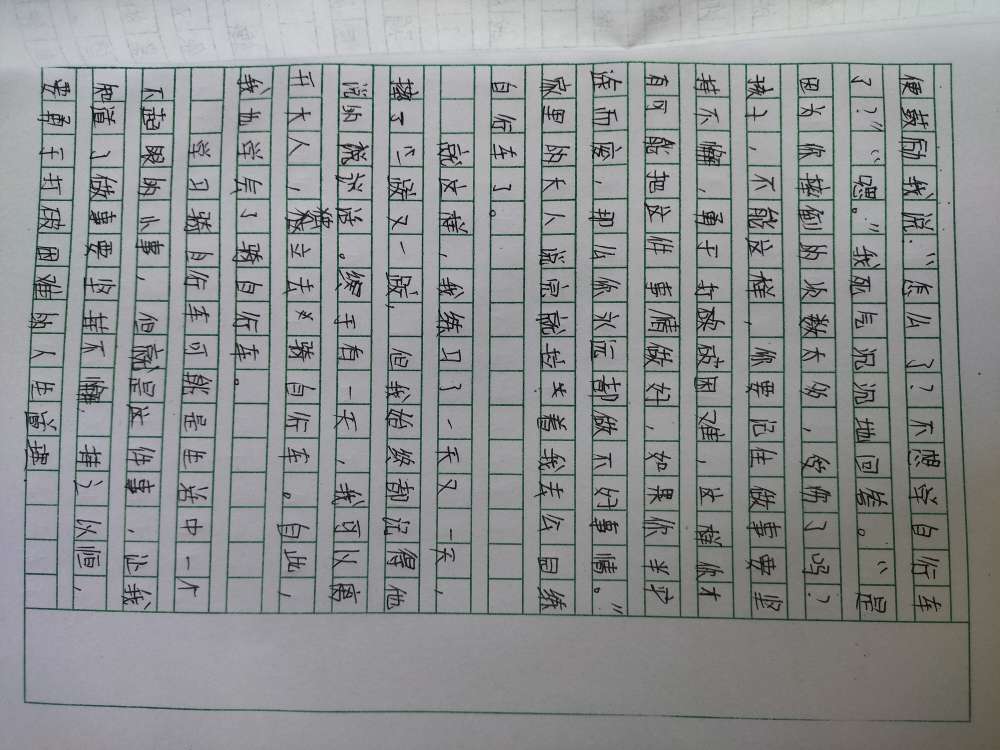 便鼓励我说:“怎么了?不想学自行车
了?”“嗯。”我死气沉沉地回答。“是
因为你摔倒的次数太多,受伤了吗?
孩子,不能这样,你要记住做事要坚
持不懈,勇于打破困难,这样你才
有可能把这件事情做好,如果你半途
而废,那么你永远都做不好事情。”
家里的大人说完就拉着我去公园练
自行车了。
就这样,我练习了一天又一天,
摔了一跤又一跤,但我始终都记得他
说的就说这。终于有一天,我可以离
开大人,独立去骑自行车。自此,
我也学会了骑自行车。
学习骑自行车可能是生活中一个
不起眼的小事,但就是这件事,让我
知道了做事要坚持不懈,持之以恒,
要勇于打破困难的人生道理